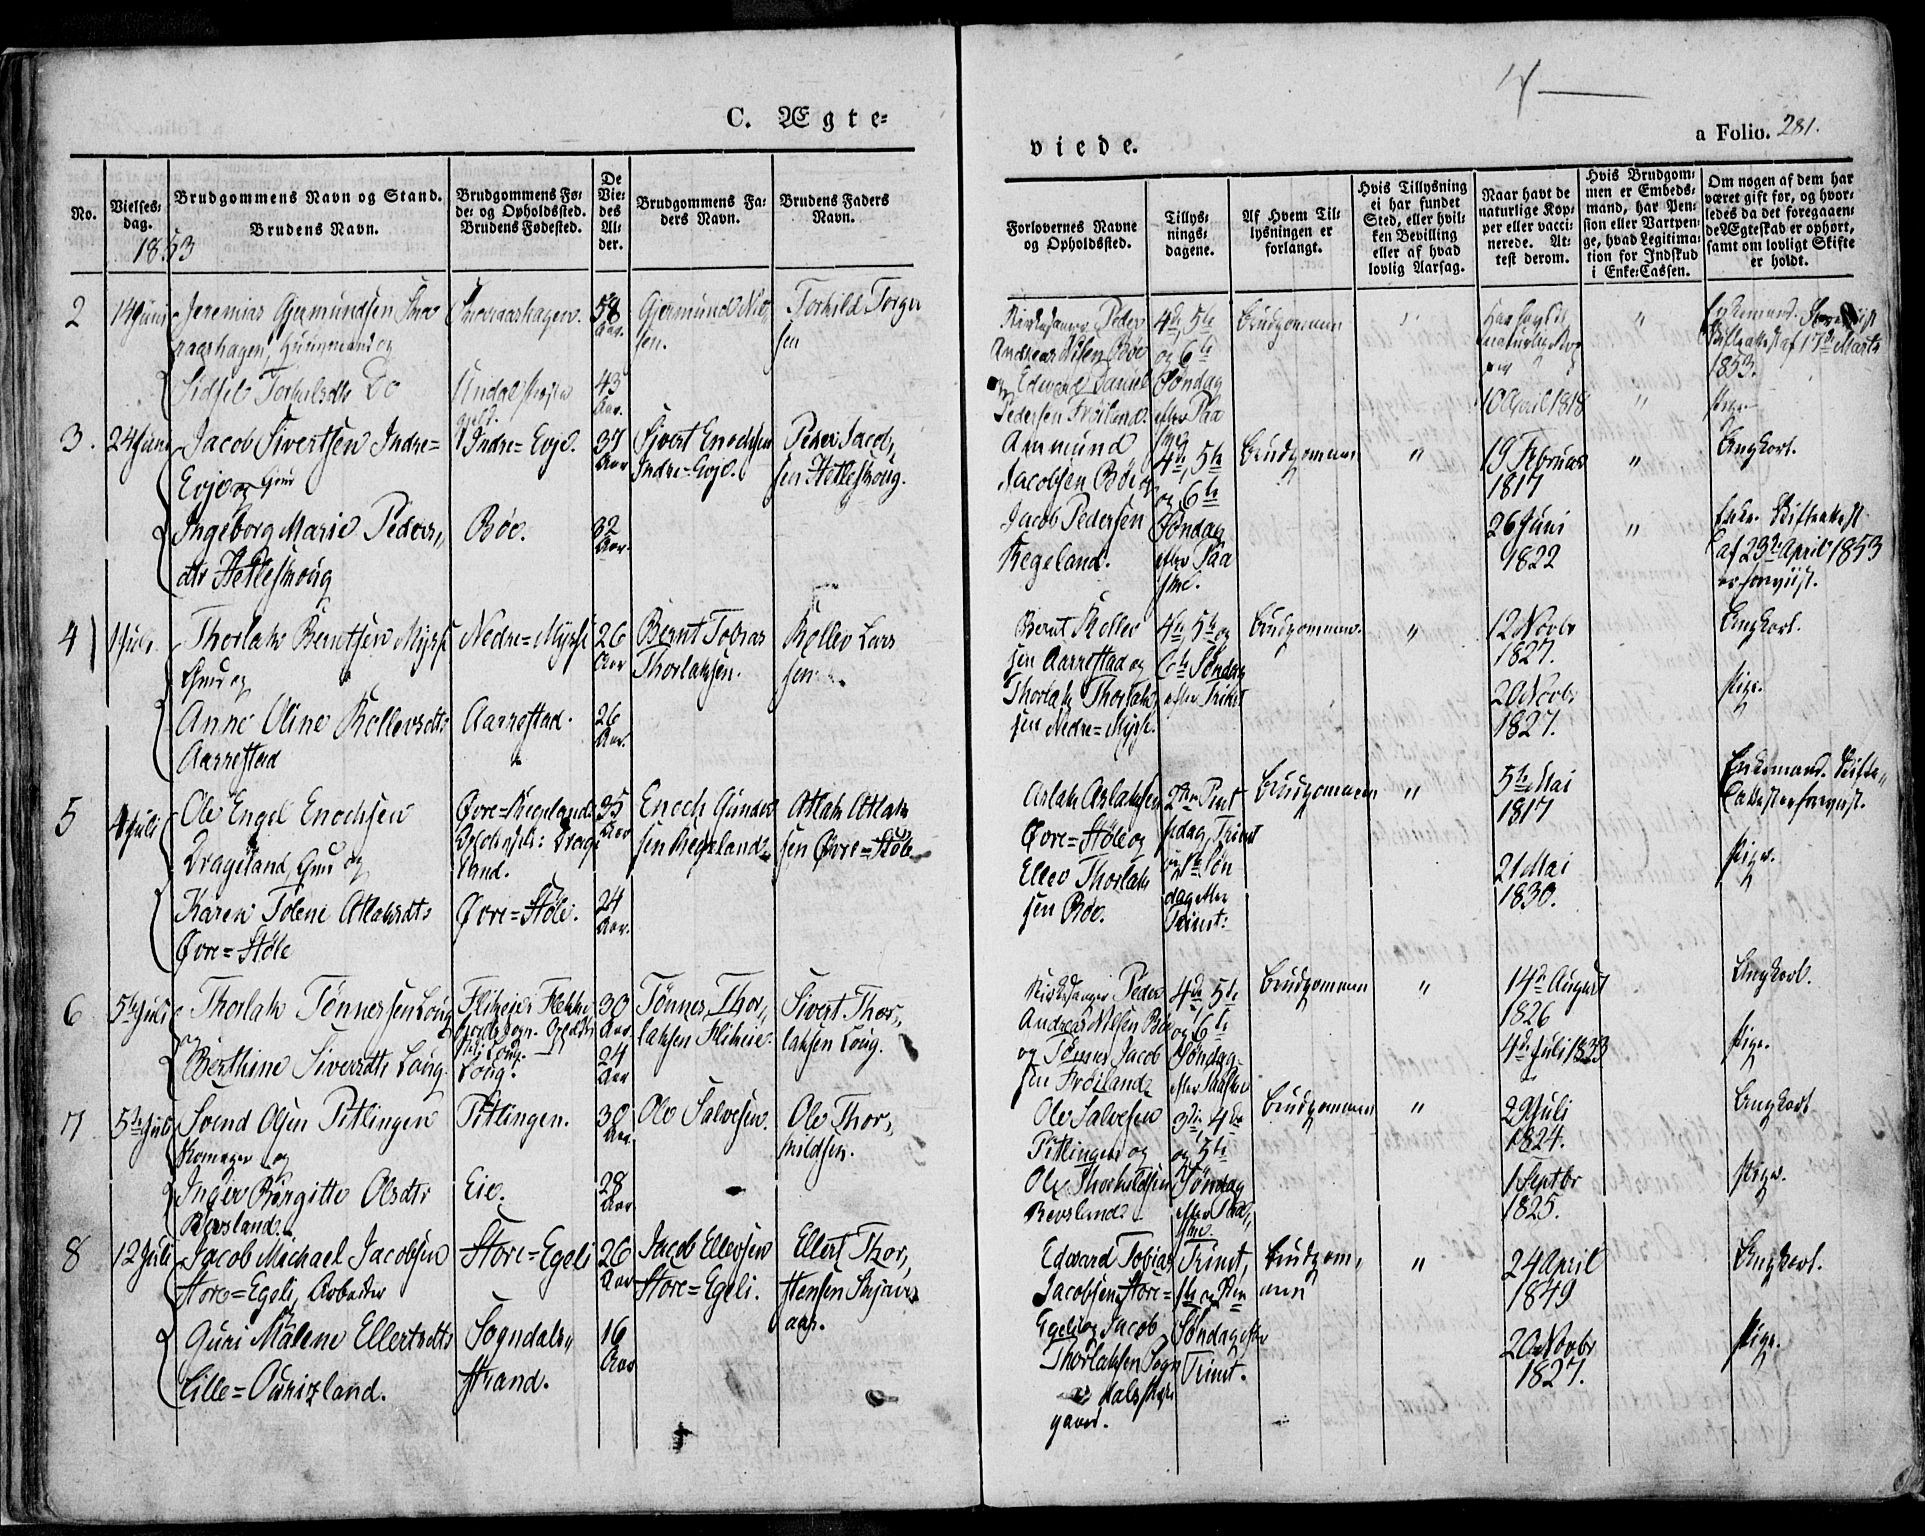 C. Ægte=
viede.
a Folio. 281.
No.
Vielses-
dag.
1853
Brudgommens Navn og Stand.
Brudens Navn.
Brudgommens Fø-
de- og Opholdssted.
Brudens Fødested.
De
Vie-
des
Al-
der.
Brudgommens Fa-
ders Navn.
Brudens Faders
Navn.
Forlovernes Navne
og Opholdssted.
Tillys-
nings-
dagene.
Af Hvem Til-
lysningen er
forlangt.
Hvis Tillysning
ei har fundet
Sted, eller hvil-
ken Bevilling
eller af hvad
lovlig Aarsag.
Naar havt de
naturlige Kop-
per eller vacci-
nerede. At-
test derom.
Hvis Brudgom-
men er Embeds-
mand, har Pen-
sion eller Vartpen-
ge, hvad Legitima-
tion for Indskud
i Enke-Cassen.
Om nogen af dem har
været gift før, og hvor-
ledes da det foregaaen-
de Ægteskab er ophørt,
samt om lovligt Skifte
er holdt.
2
14 Juni
Jeremias Gjermundsen
og
Sidsel Torkildsdtr Do
58
Aar.
43
Aar.
Gjermund
sen.
Torkild Torger
sen
Kirkesanger Peder
Andreas Nilsen Bøe
og Edvard Daniel
Pedersen Frøiland.
4de, 5te
og 6te
Søndag
efter Paa
ske
Brudgommen
"
Har havt de
naturlige Kop
per
10 April 1818
"
"
Enkemand.
Skifteattest af 17de Marts
1853.
Pige.
3.
24 Juni
Jacob Sivertsen Indre=
Evje og Gmd
Ingeborg Marie Peders„
dtr Hetleskoug
Indre=Evje.
Bøe.
37
Aar
32
Aar.
Sivert Enochsen
Indre=Evje.
Peder Jacob„
sen Hetleskoug.
Aanmund
Jacobsen Bøe og
Jacob Pedersen
Regeland.
4de, 5te
og 6te
Søndag
efter Paa
ske.
Brudgommen
"
19 Februar
1817
26 Juni
1822
"
"
Ungkarl.
Enke. Skifteattest
af 23de April 1853
er forevist.
4
1 Juli
Thorlak Berntsen Mysse
Gmd og
Anne Oline Kollevsdtr
Aarrestad
Nedre=Mysse
Aarrestad.
26
Aar
26
Aar.
Bernt Tobias
Thorlaksen.
Kollev Lars
sen
Bernt Kollev
sen Aarrestad og
Thorlak Thorlak
sen Nedre=Mysse.
4de, 5te og
6te Søndag
efter Trinit
Brudgommen.
"
12 Novbr
1827.
20 Novbr
1827.
Ungkarl.
Pige.
5
4 Juli
Ole Engel Enochsen
Drageland, Gmd og
Karen Tolene Atlaksdtr
Øvre=Støle
Øvre=Regeland
Opholdssted: Drage
land.
Øvre=Støle.
35
Aar
24
Aar.
Enoch Gunder
sen Regeland
Atlak Atlak
sen Øvre=Støle
Aslak Aslaksen
Øvre=Støle og
Ellev Thorlak
sen Bøe.
2den Pint
sedag, Trinit
Søn
dag efter
Trinit:
Brudgommen
"
5te Mai
1817
21 Mai
1830.
Enkemand. Skifte„
attest er forevist.
Pige.
6
5te Juli
Thorlak Tønnessen Loug
Berthine Sivertdtr Loug
Flikeie, Flekke
fjords Sogn. Opholds
sted Loug.
Loug.
30
Aar
24
Aar
Tønnes Thor„
laksen Flikeie.
Sivert Thor„
laksen Loug.
Kirkesanger Peder
Andreas Nilsen Bøe
og Tønnes Jacob
sen Frøiland
4de, 5te
og 6te
Søndag
efter Paaske
Brudgommen
"
14de August
1826
4de Juli 1833
Ungkarl.
Pige.
7
5te Juli
Svend Olsen Pitlingen
og
Inger Birgitte Olsdtr
Revsland.
Pitlingen.
Eie.
30
Aar.
28
Aar
Ole Salvesen.
Ole Thor„
kildsen.
Ole Salvesen
Pitlingen og
Ole Thorkildsen
Revsland
3die, 4de
og 5te
Søndag
efter Paa„
ske.
Brudgommen
"
29 Juli
1824.
1 Septbr
1825.
Ungkarl
Pige.
8
12 Juli
Jacob Michael Jacobsen
Store=Egeli, Arbeider
og
Guri Malene Ellertsdtr
Lille=Ourizland.
Store=Egeli
Sogndals„
strand.
26
Aar
16
Aar
Jacob Ellevsen
Store=Egeli.
Ellert Thor„
stensen Skjeves
aas.
Edvard Tobias
Jacobsen Store=
Egeli og Jacob
Thorlaksen Sogn
dals Præste
gaard.
Trinit,
1ste og 2den
Søndag efter
Trinit.
Brudgom„
men
"
24 April
1849
20 Novbr
1827.
Ungkarl.
Pige.